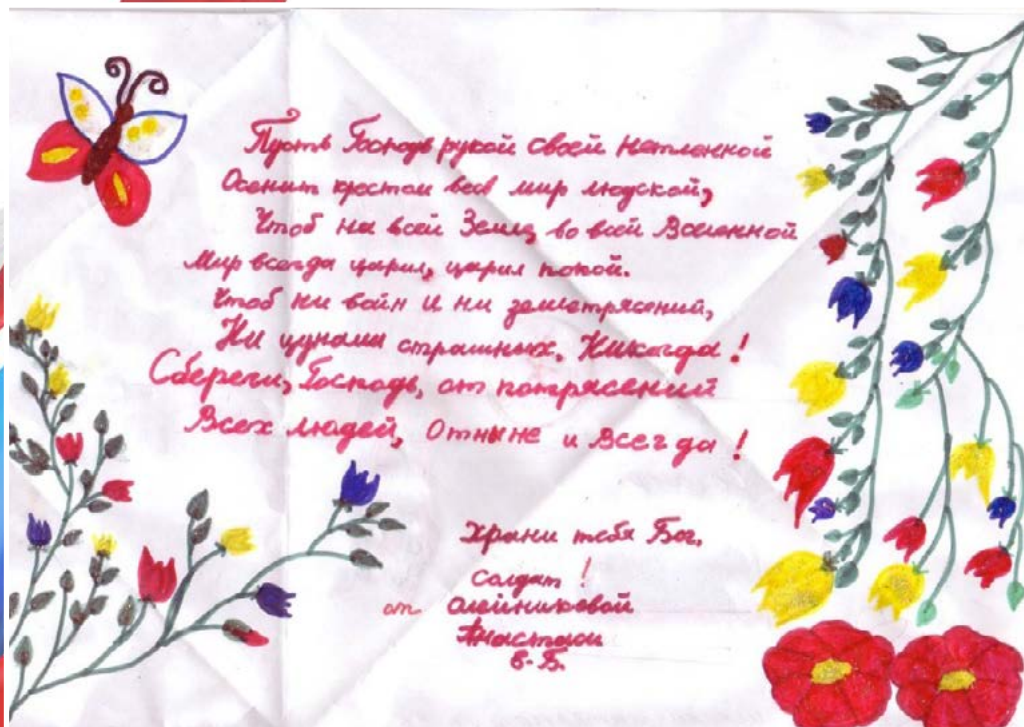 Пусть Господь рукой своей нетленной
Осенит крестом весь мир людской,
Чтоб на всей Земле, во всей Вселенной
Мир всегда царил, царил покой.
Чтоб ни войн и ни землетрясений,
Ни цунами страшных. Никогда!
Сбереги, Господь, от потрясений
Всех людей, Отныне и Всегда!
Храни тебя Бог,
солдат!
от Олейниковой
Анастасии
8-Б.